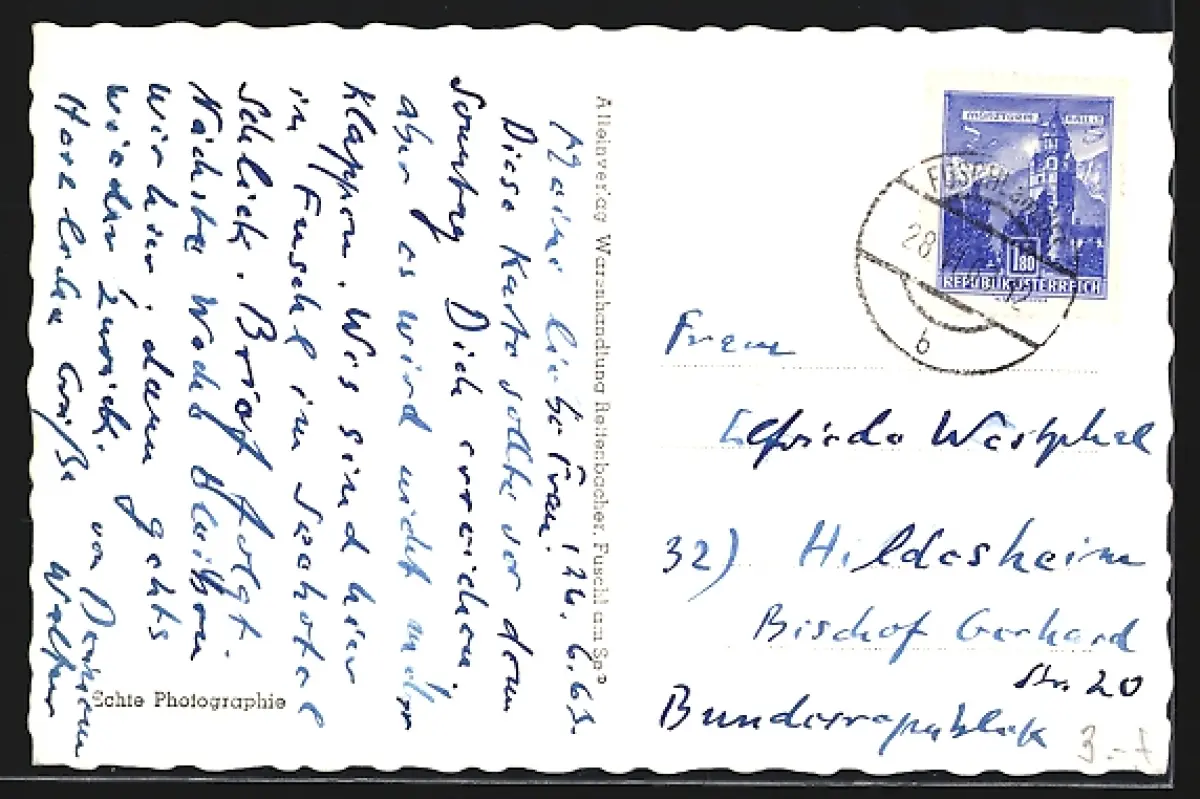 Meine liebe Frau! 26.6.63.
Diese Karte sollte vor dem
Sonntag Dich erreichen.
aber es wird nicht mehr
klappen. Wir sind hier
in Fuschl im Seehotel
Schlick. Brief folgt.
Nächste Woche bleiben
wir hier. dann gehts
wieder zurück.
Herzliche Grüße
von Deinem
Walter
Echte Photographie
Alleinverlag Warenhandlung Reitenbacher, Fuschl am See
MÜNZTURM HALL
1.80
REPUBLIK ÖSTERREICH
FUSCHL
28
b
Frau
Elfriede Westphal
32) Hildesheim
Bischof Gerhard
Str. 20
Bundesrepublik
3.-